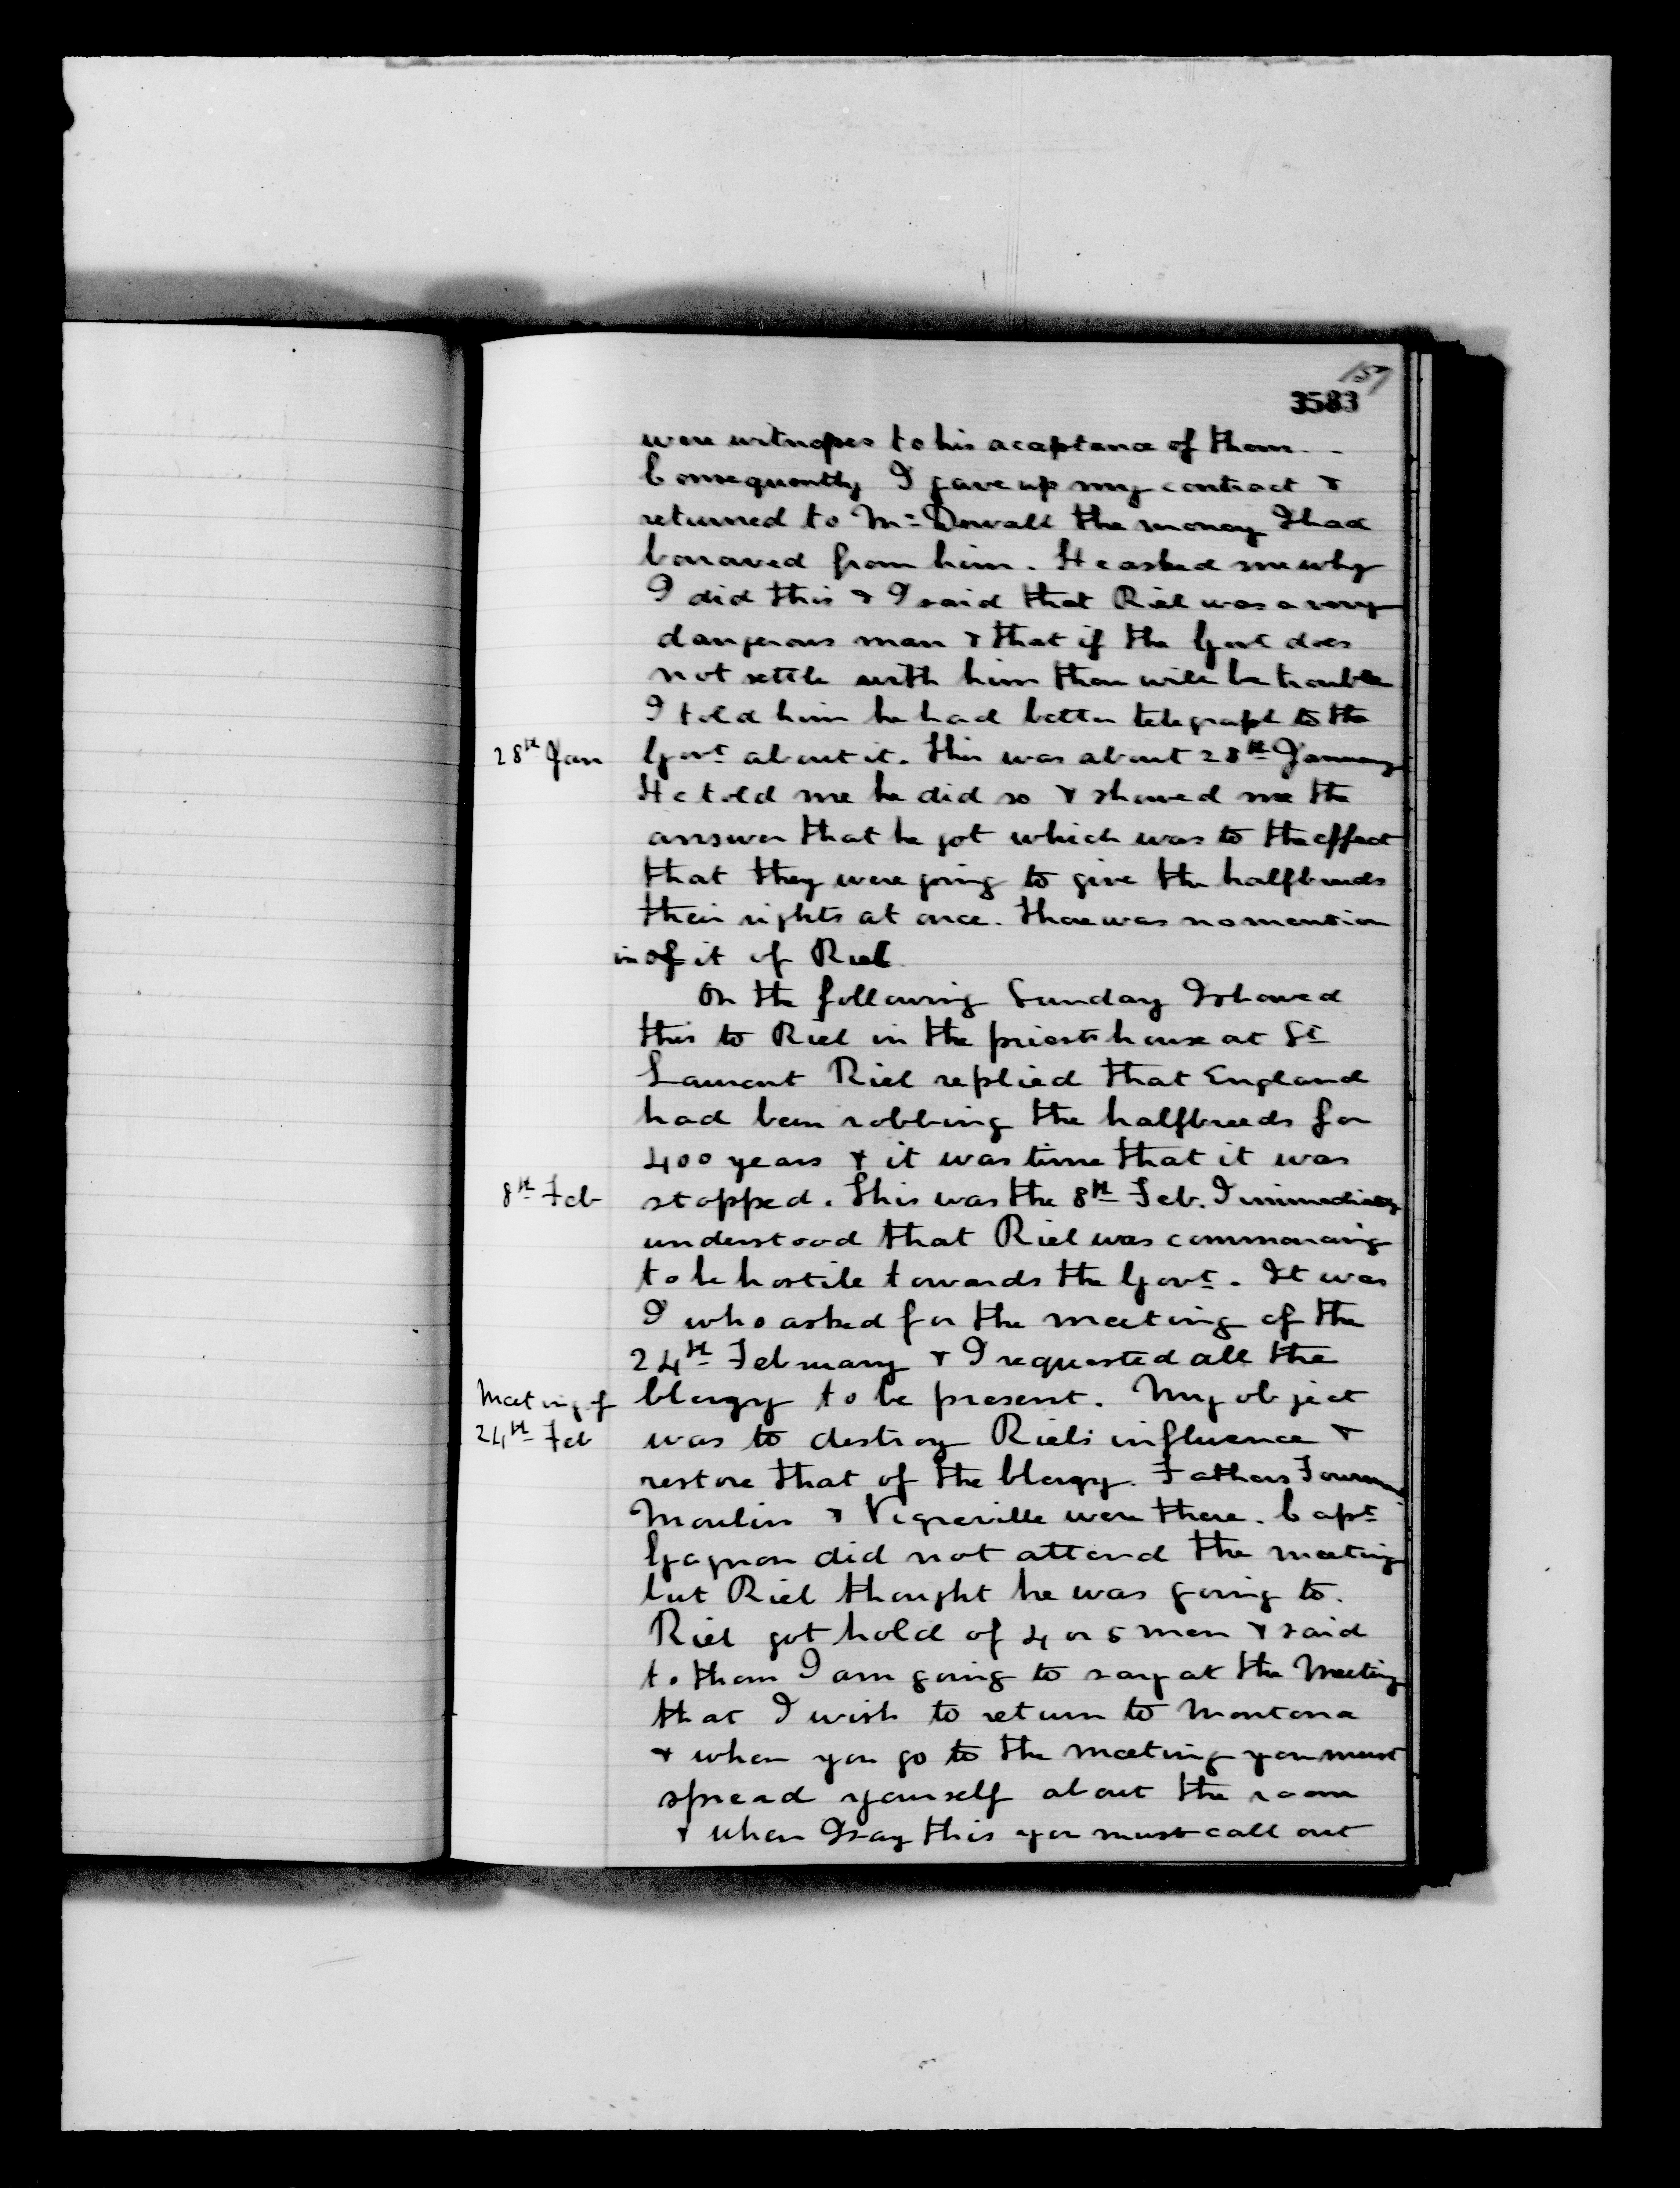 157
3583
were witnesses to his acceptance of them.
Consequently I gave up my contract &
returned to Mr. Dowall the money I had
borroved from him. He asked me why
I did this & I said that Riel was a very
dangerous man & that if the Govt does
not settle with him then will be trouble
I told him he had better telegraph to the
28th Jan Govt about it. This was about 28th January
He told me he did so & showed me the
answer that he got which was to the effect
that they were going to give the halfbreeds
their rights at once. There was no mention
in of it of Riel.
On the following Sunday I showed
this to Riel in the priests house at St
Laurent Riel replied that England
had been robbing the halfbreeds for
400 years & it was time that it was
8th Feb stopped. This was the 8th Feb. I immediately
understood that Riel was commencing
to be hostile towards the Govt. It was
I who asked for the meeting of the
24th February & I requested all the
Meeting of Clergy to be present. My object
24th Feb was to destroy Riels influence &
restore that of the Clergy. Fathers
Moulin & Vegreville were there. Capt
Gagnon did not attend the meeting
but Riel thought he was going to.
Riel got hold of 4 or 5 men & said
to them I am going to say at the Meeting
that I wish to return to Montana
& when you go to the meeting you must
spread yourself about the room
& when I say this you must call out